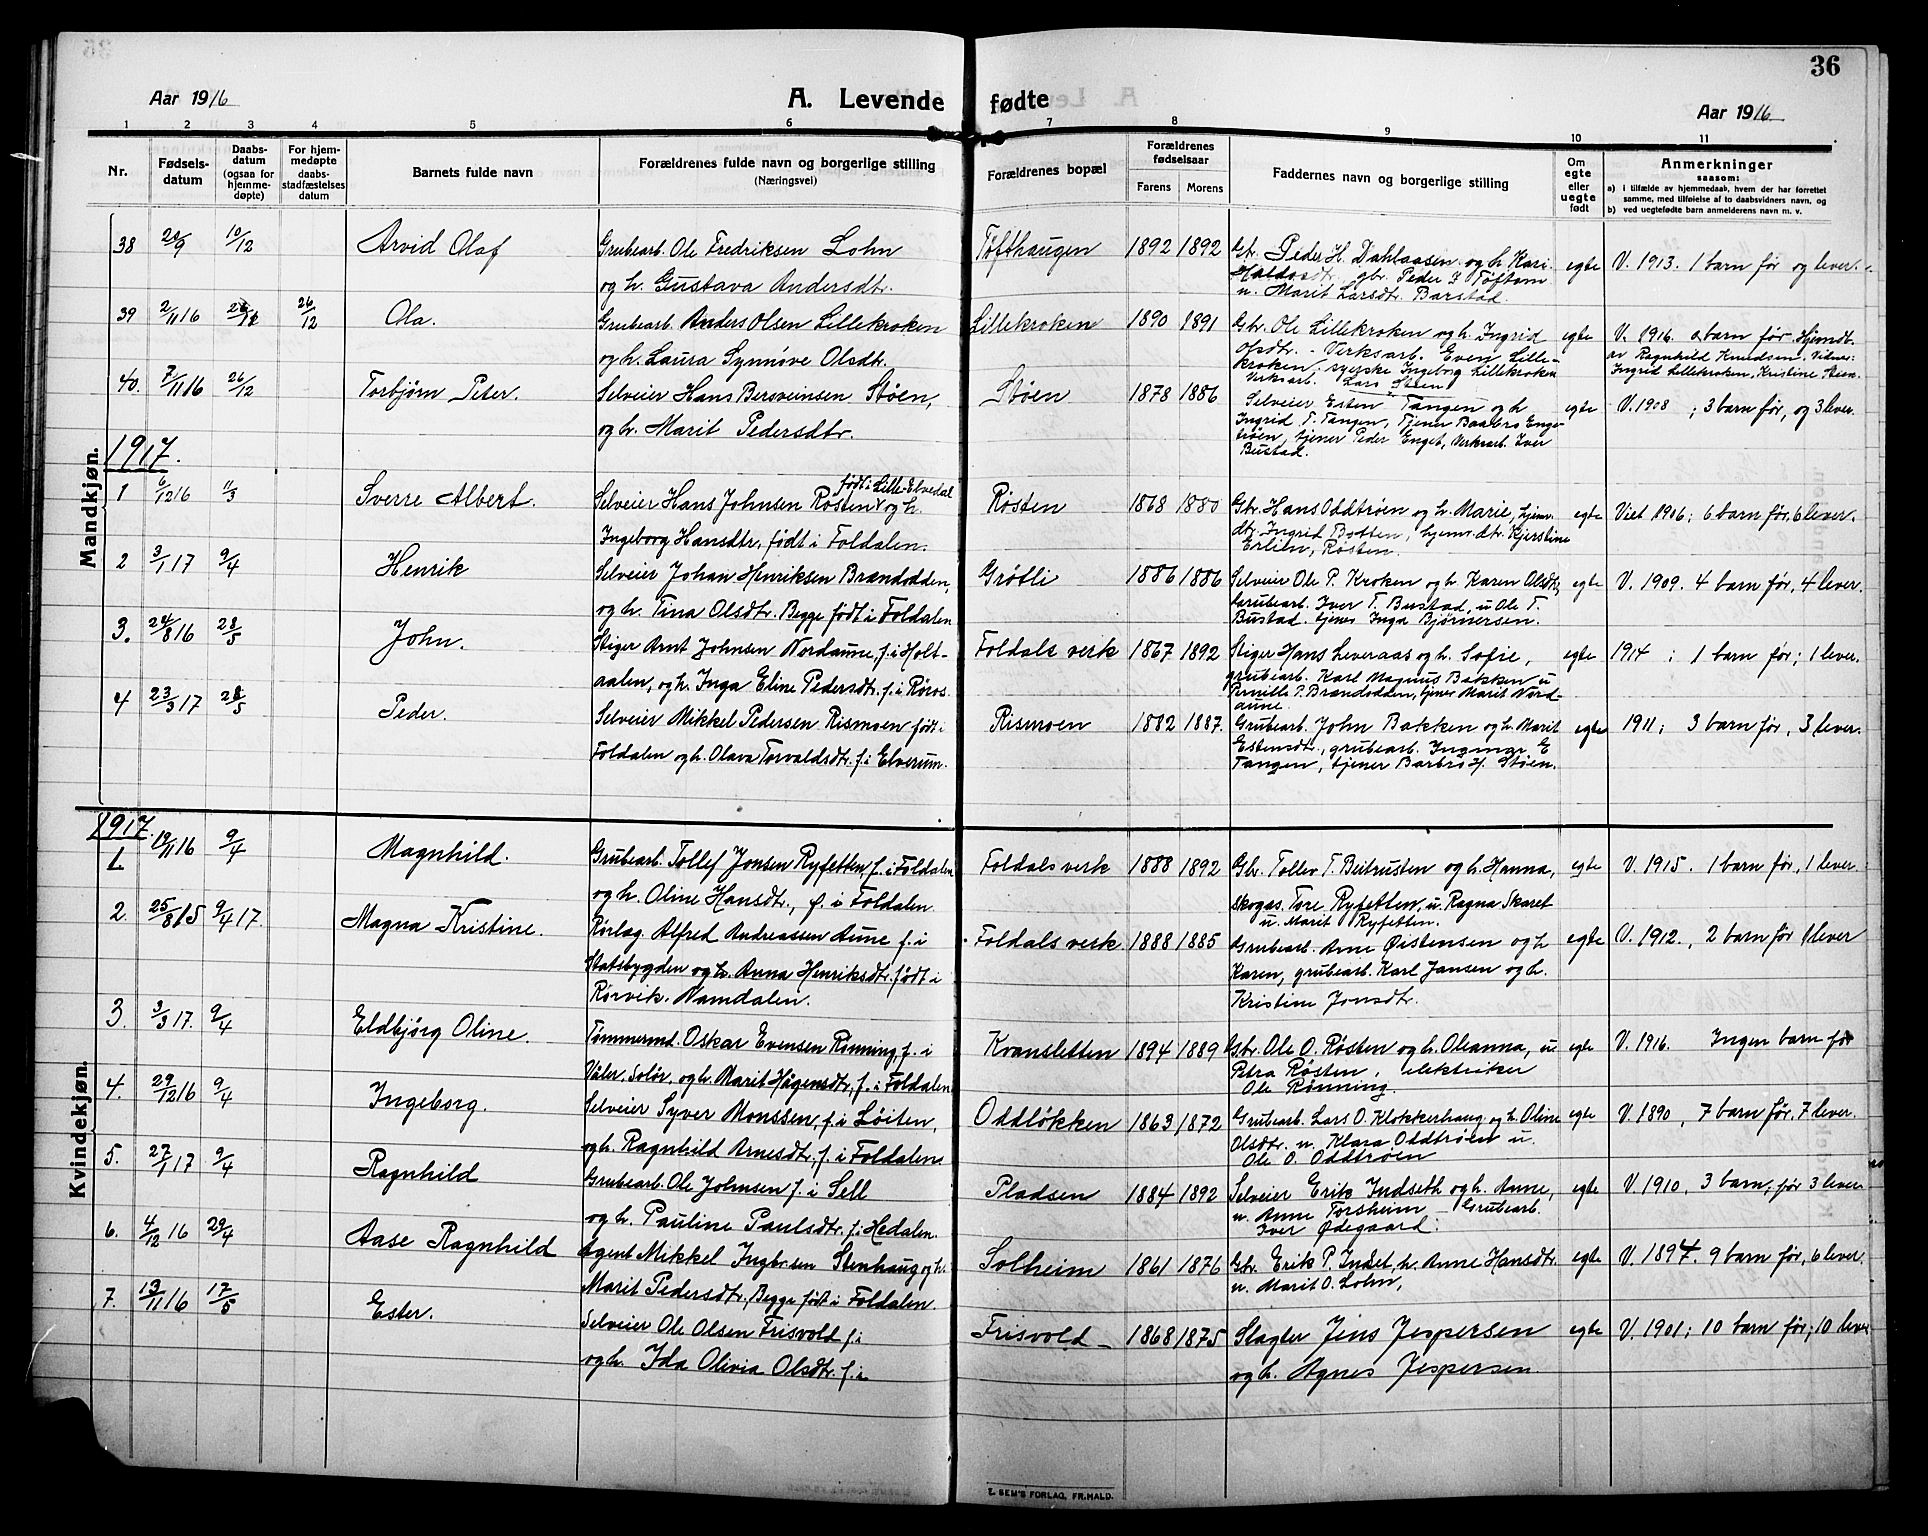 36
Aar 1916
A. Levende fødte
Aar 1916
1 2 3 4 5 6 7 8 9 10 11
Nr.
Fødsels-
datum
Daabs-
datum
(ogsaa for
hjemme-
døpte)
For hjem-
medøpte
daabs-
stadfæstelses
datum
Barnets fulde navn
Forældrenes fulde navn og borgerlige stilling
(Næringsvei)
Forældrenes bopæl
Forældrenes
fødselsaar
Farens Morens
Faddernes navn og borgerlige stilling
Om
egte
eller
uegte
født
Anmerkninger
saasom:
a) i tilfælde av hjemmedaab, hvem der har forrettet
samme, med tilføielse af to daabsvidners navn, og
b) ved uegtefødte barn anmelderens navn m. v.
Mandkjøn.
38 20/9 10/12 Arvid Olaf Grubearb. Ole Fredriksen Lohn Tøfthaugen 1892 1892 Gb. Peder H. Dahlaasen og h. Kari egte V. 1913. 1 barn før og lever.
og h. Gustava Andersdtr. gbr. Peder J Tøftom
u. Marit Larsdtr. Barstad.
39 2/11 16 26/12 Ola. Grubearb. Anders Olsen Lillekroken Lillekroken 1890 1891 Gbr. Ole Lillekroken og h. Ingrid egte V. 1916. 0 barn før. Hjemdt.
og h. Laura Synnøve Olsdtr. Olsdtr. - Verksarb. Even Lille- av Ragnhild Knudsen. Vidner:
kroken, Ingeborg Lillekroken Ingrid Lillekroken, Kristine Steen.
Verksarb. Lars Steen
40. 7/11 16 26/12 Torbjørn Peter. Selveier Hans Bersveinsen Støen, Støen 1878 1886 Selveier Esten Tangen og h egte V. 1908 ; 3 barn før, og 3 lever.
og h. Marit Pedersdtr. Ingrid T. Tangen, Tjener Baabro Enge-
tjener Peder Enget, Verksarb. Iver
Bustad.
1917.
1 6/12 16 11/3 Sverre Albert. født i Lille-Elvedal
Selveier Hans Johnsen Røsten og h. Røsten 1868 1880 Gbr. Hans Oddtrøen og h. Marie, hjem. egte Viet 1906; 6 barn før, 6 lever.
Ingeborg Hansdtr. født i Foldalen. dtr. Ingrid Botten, hjem. dtr. Kjerstine
Erlien, Røsten.
2 3/1 17 9/4 Henrik Selveier Johan Henriksen Brandodden, Grøtli 1886 1886 Selveier Ole P. Kroken og h. Karen Olsdtr, egte V. 1909. 4 barn før, 4 lever.
og h. Tina Olsdtr. Begge født i Foldalen Grubearb. Iver T. Bustad, u Ole T.
Bustad. tjener Inga Bjørnersen.
3. 24/8 16 28/5 John. Stiger Arnt Johnsen Nordaune, f. i Holt- Foldals verk 1867 1892 Stiger Hans Leveraas og h. Sofie, egte 1914 ; 1 barn før; 1 lever.
aalen, og h. Inga Eline Pedersdtr. f. i Røros. grubearb. Karl Magnus Bakken u
Pernille P. Brandodden, tjener Marit Nord-
aune.
4 23/3 17 28/5 Peder. Selveier Mikkel Pedersen Rismoen født i Rismoen 1882 1887. Grubearb. John Bakken og h. Marit egte 1911; 3 barn før, 3 lever.
Foldalen og h. Olava Torvaldsdtr. f. i Elverum. Estensdtr., grubearb. Ingmar E
Tangen, tjener Barbro H. Støen.
Kvindekjøn.
1917.
1 19/11 16 9/4 Magnhild. Grubearb. Tollef Jonsen Ryfetten, f. i Foldalen Foldals verk 1888 1892 Gbr. Tollev T. Beitrusten og h. Hanna, egte V. 1915. 1 barn før, 1 lever
og h. Oline Hansdtr., f. i Foldalen. skogas. Tore Ryfetten, u. Ragna Skaret
u. Marit Ryfetten.
2. 25/8 15 9/4 17. Magna Kristine. Rørlæg. Alfred Andreassen Aune f. i Foldals verk 1888 1885 Grubearb. Arne Øistensen og h egte V. 1912., 2 barn før 1 lever
Statsbygden og h. Anna Henriksdtr. født i Karen, grubearb. Karl Jansen og h.
Rørvik. Namdalen. Kristine Jonsdtr.
3. 3/3 17. 9/4 Eldbjørg Oline. Tømmermd. Oskar Evensen Rønning, f. i Kvansletten 1894 1889 Gbr. Ole O. Røsten og h. Oleanna, u egte V. 1916. Ingen barn før
Våler, Solør, og h. Marit Hågensdtr., f. i Foldalen Petra Røsten, elektriker
Ole Rønning.
4. 29/12 16 9/4 Ingeborg. Selveier Syver Monssen, f. i Løiten, Oddløkken 1863 1872 Grubearb. Lars O. Klokkerhaug og h. Oline egte V. 1890, 7 barn før, 7 lever.
og h. Ragnhild Arnesdtr., f. i Foldalen. Olsdtr. u. Klara Oddtrøen u.
Ole O. Oddtrøen
5. 27/1 17 9/4 Ragnhild Grubearb. Ole Johnsen f. i Sell Pladsen 1884 1892 Selveier Erik Indseth og h. Anne, egte V. 1910, 3 barn, før 3 lever
og h. Pauline Paulsdtr. f. i Hedalen. u. Anne Torsheim - Grubearb.
Iver Ødegaard.
6. 4/12 16 29/4 Aase Ragnhild Agent Mikkel Ingbr.sen Stenhaug og h. Solheim 1861 1876 Gbr. Erik P. Indset, h. Anne Hansdtr. egte V. 1894. 9 barn før, 6 lever.
Marit Pedersdtr. Begge født i Foldalen. u. Marit O. Lohn,
7. 13/11 16 17/5 Ester. Selveier Ole Olsen Frisvold f. i Frisvold - 1868 1875 Slagter Jens Jespersen egte V. 1901; 10 barn før; 10 lever
og h. Ida Olivia Olsdtr. f. i og h. Agnes Jespersen
E. SEM'S FORLAG, FR.HALD.